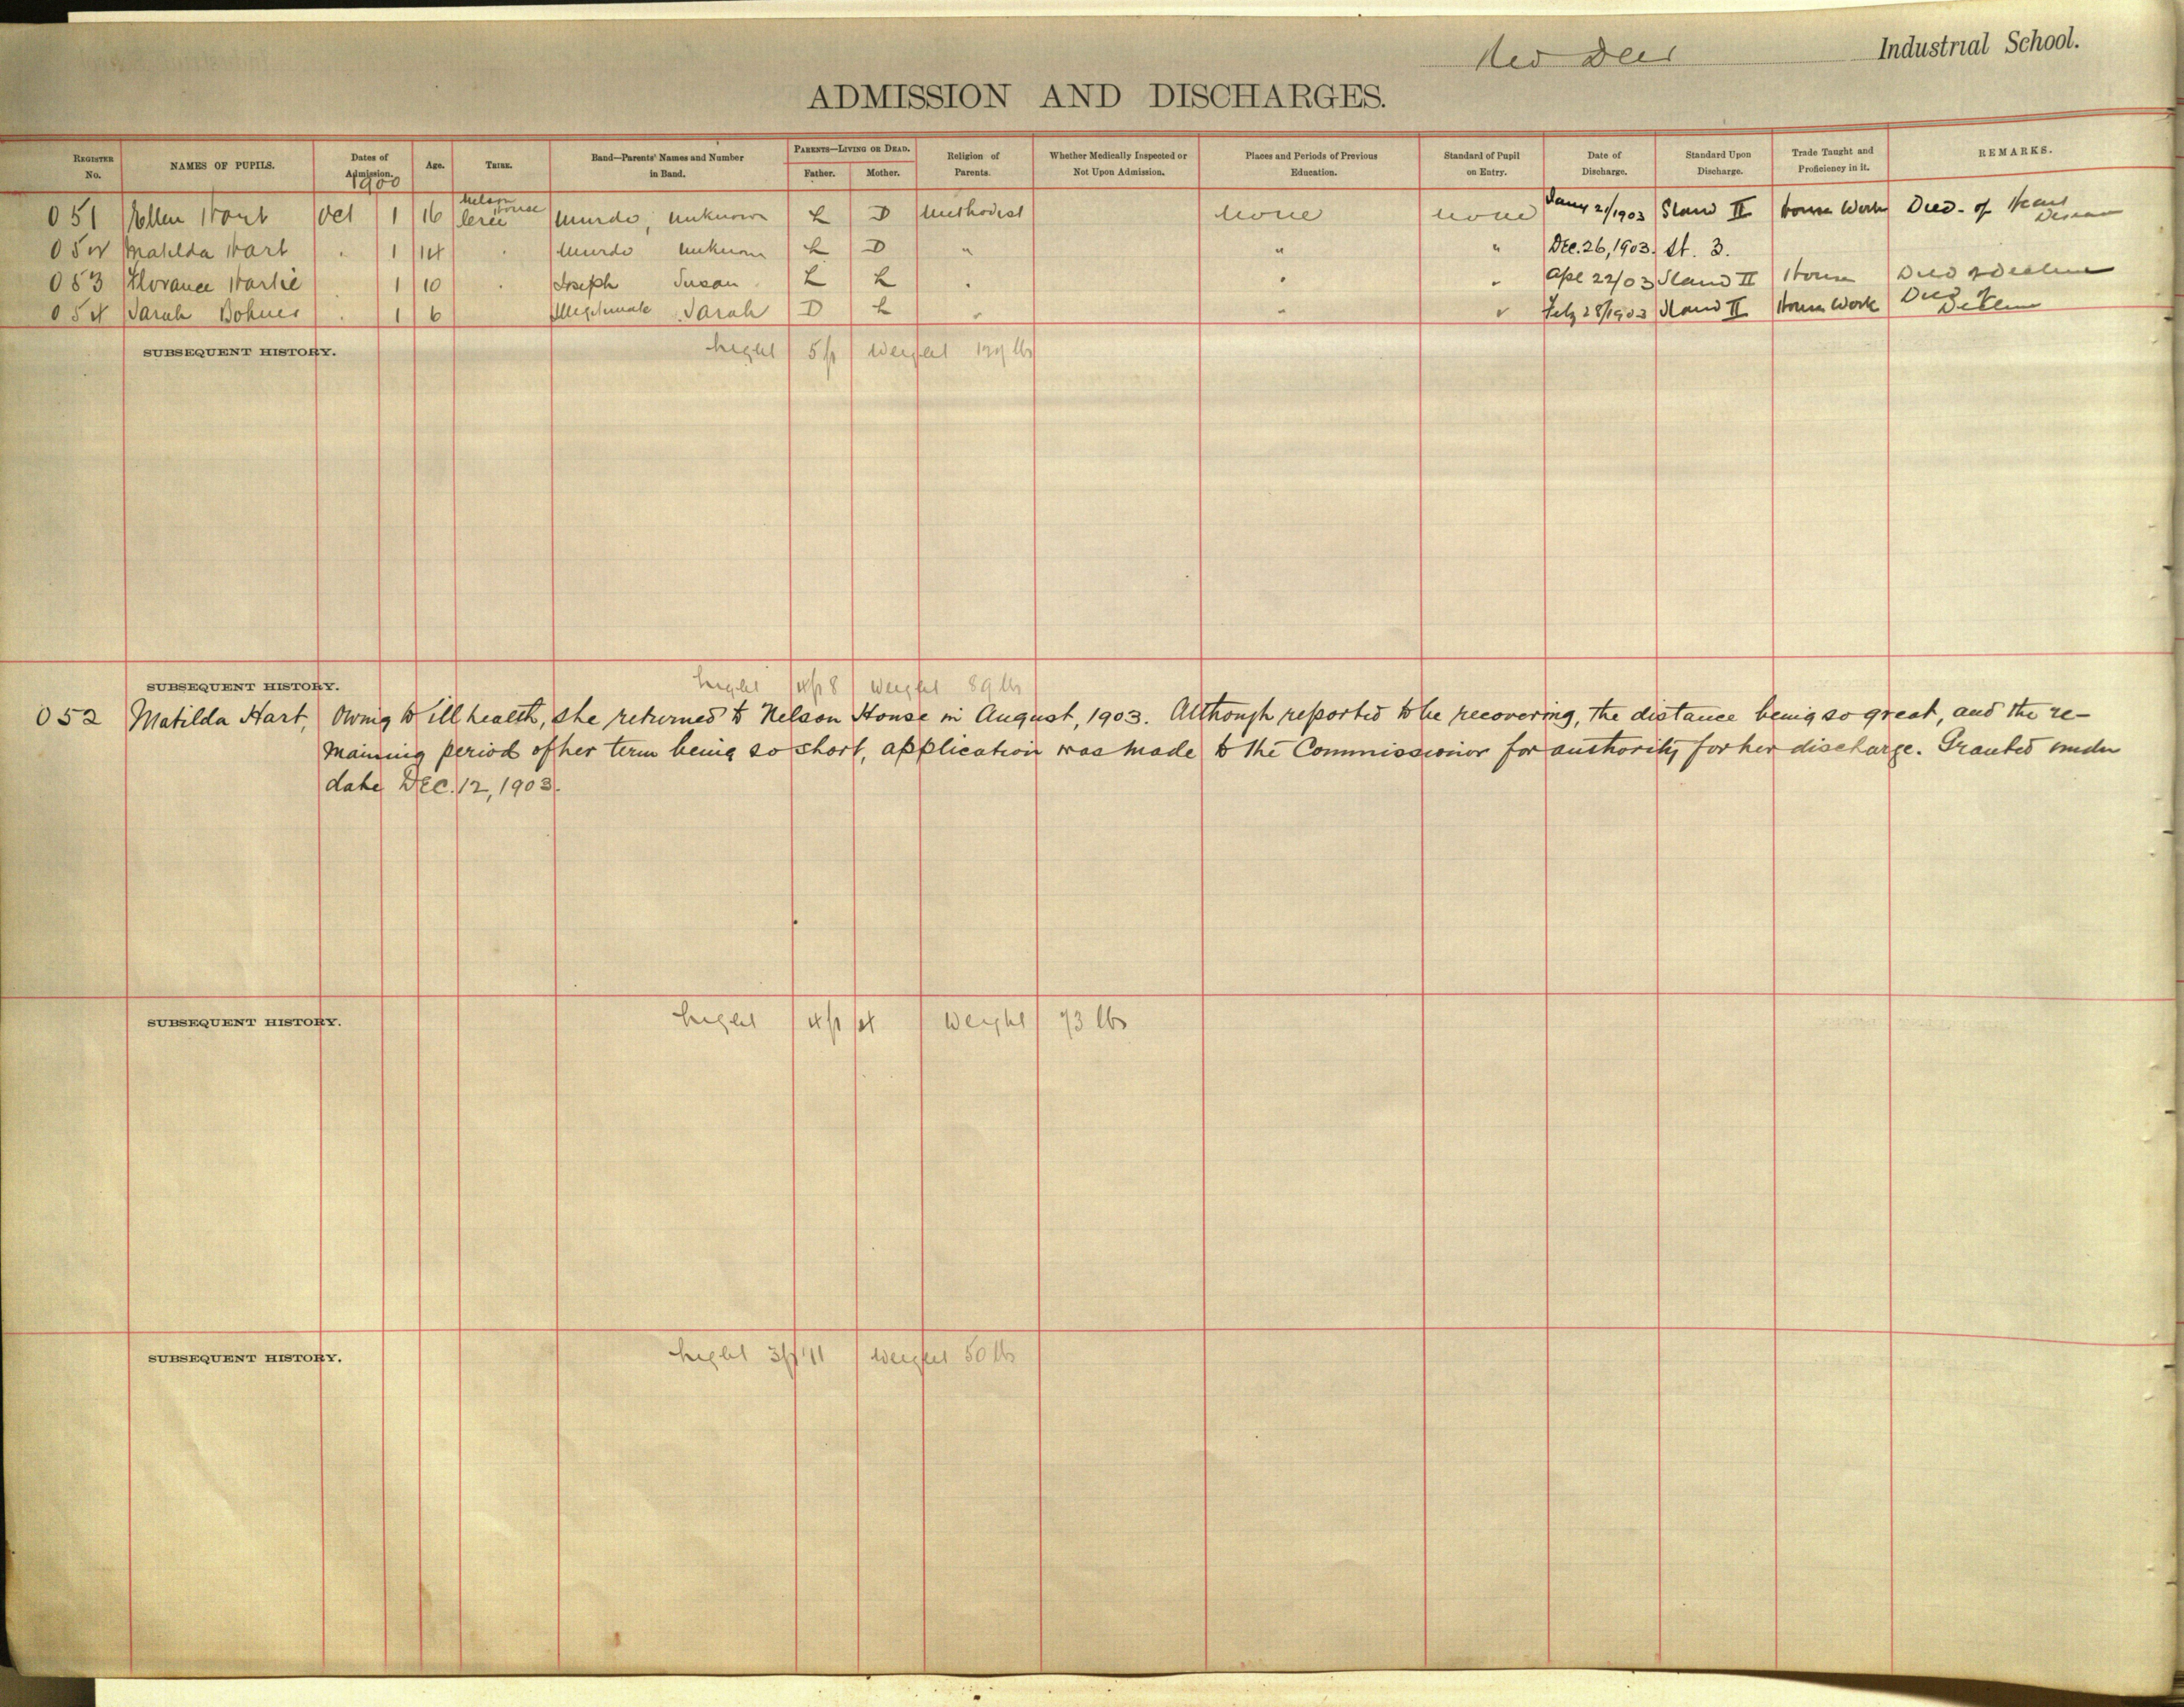 Red Deer Industrial School.
ADMISSION AND DISCHARGES.
REGISTER No. NAMES OF PUPILS. Dates of Admission. Age. TRIBE. Band—Parents' Names and Number in Band. PARENTS—LIVING OR DEAD. Father. Mother. Religion of Parents. Whether Medically Inspected or Not Upon Admission. Places and Periods of Previous Education. Standard of Pupil on Entry. Date of Discharge. Standard Upon Discharge. Trade Taught and Proficiency in it. REMARKS.
1900
051 Hart Oct 1 16 Nelson House Cree Murdo, unknown L D Methodist none none Jany 21/1903 Stand II House Work Died. of
052 Matilda Hart " 1 14 " Murdo unknown L D " " " Dec. 26, 1903. St. 3.
053 1 10 " Joseph Susan L L " " " Apl 22/03 Stand II House Died
054 Sarah " 1 6 Illegitimate Sarah D L " " " Feb 28/1903 Stand II House Work
SUBSEQUENT HISTORY. height 5 ft weight lbs
SUBSEQUENT HISTORY. height 4 ft 8 weight 89 lbs
052 Matilda Hart, Owing to ill health, she returned to Nelson House in August, 1903. Although reported to be recovering, the distance being so great, and the re-
maining period of her term being so short, application was made to the Commissioner for authority for her discharge. Granted under
date Dec. 12, 1903.
SUBSEQUENT HISTORY. height 4 ft 4 weight 73 lbs
SUBSEQUENT HISTORY. height 3 ft 11 weight 50 lbs